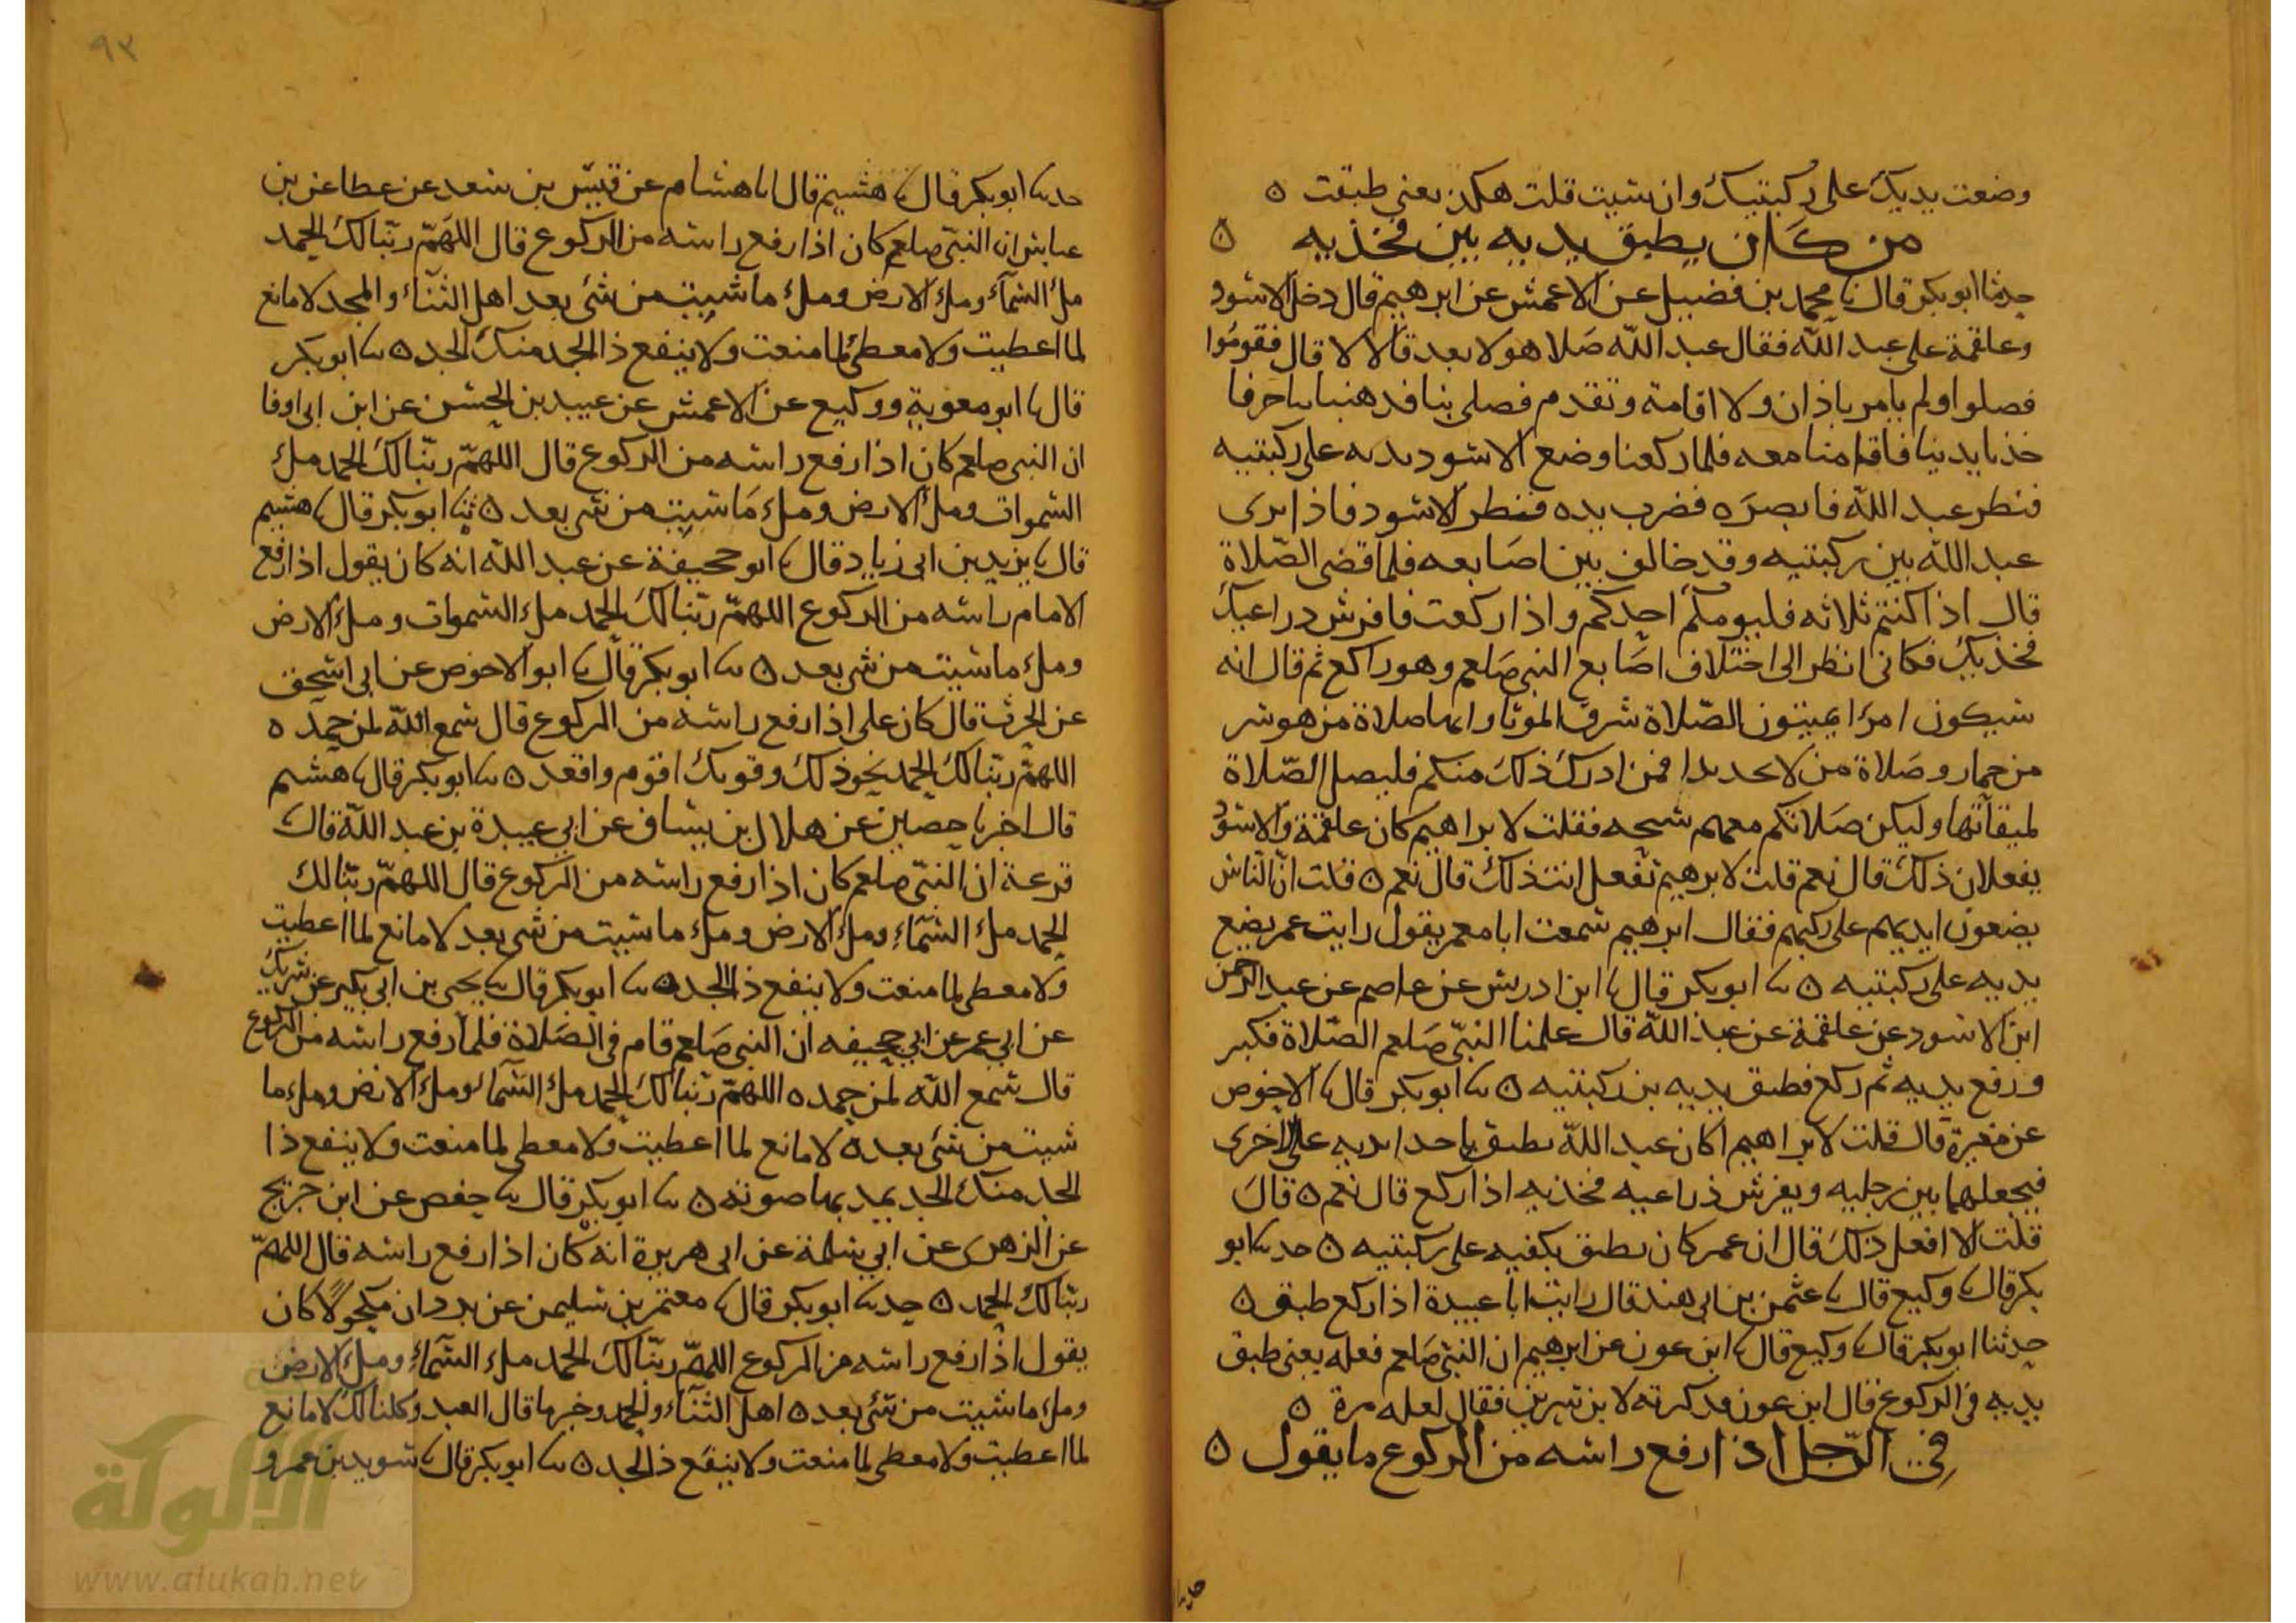 وضعت يديك على ركبتيك وان شيت قلت هكذى يعنى طبقت ه
من كان يطبق يديه بين فخذيه ه
حدثنا ابو بكر قال نا محمد بن فضيل عن الاعمش عن ابرهيم قال دخل الاسود
وعلقمة على عبد الله فقال عبد الله صلا هولا بعد قالا لا قال فقوموا
فصلوا ولم يامر باذان ولا اقامة وتقدم فصلى بنا فذهبنا نتاخر فا
خذ بايدينا فاقامنا معه فلما ركعنا وضع الاسود يديه على ركبتيه
فنظر عبد الله فابصره فضرب يده فنظر الاسود فاذا يدى
عبد الله بين ركبتيه وقد خالف بين اصابعه فلما قضى الصلاة
قال اذا كنتم ثلاثه فليومكم احدكم واذا ركعت فافرش ذراعيك
فخذيك فكانى انظر الى اختلاف اصابع النبى صلعم وهو راكع ثم قال انه
سيكون امرا يميتون الصلاة شرق الموتا وانها صلاة من هو شر
من حمار وصلاة من لا يجد بدا فمن ادرك ذلك منكم فليصل الصلاة
لميقاتها وليكن صلاتكم معهم سبحه فقلت لابراهيم كان علقمة والاسود
يفعلان ذلك قال نعم قلت لابرهيم تفعل انت ذلك قال نعم ه قلت ان الناس
يضعون ايديهم على ركبهم فقال ابرهيم سمعت ابا معمر يقول رايت عمر يضع
يديه على ركبتيه ه نا ابو بكر قال نا ابن ادريس عن عاصم عن عبد الرحمن
ابن الاسود عن علقمة عن عبد الله قال علمنا النبى صلعم الصلاة فكبر
ورفع يديه ثم ركع فطبق يديه بين ركبتيه ه نا ابو بكر قال نا الاحوص
عن مغيرة قال قلت لابراهيم اكان عبد الله يطبق باحدا يديه على الاخرى
فيجعلهما بين رجليه ويفرش ذراعيه فخذيه اذا ركع قال نعم ه قال
قلت الا افعل ذلك قال ان عمر كان يطبق بكفيه على ركبتيه ه حدثنا ابو
بكر قال نا وكيع قال نا عثمن بن ابى هند قال رايت ابا عبيدة اذا ركع طبق ه
حدثنا ابو بكر قال نا وكيع قال نا ابن عون عن ابرهيم ان النبى صلعم فعله يعنى طبق
يديه فى الركوع قال ابن عون فذكرته لابن سيرين فقال لعله مرة ه
فى الرجل اذا رفع راسه من الركوع ما يقول ه
٩٣
حدثنا ابو بكر قال نا هشيم قال انا هشام عن قيس بن سعد عن عطا عن بن
عباس ان النبى صلعم كان اذا رفع راسه من الركوع قال اللهم ربنا لك الحمد
ملء السماء وملء الارض وملء ما شيت من شئ بعد اهل الثناء والمجد لا مانع
لما اعطيت ولا معطى لما منعت ولا ينفع ذا الجد منك الجد ه نا ابو بكر
قال نا ابو معوية ووكيع عن الاعمش عن عبيد بن الحسن عن ابن ابى اوفا
ان النبى صلعم كان اذا رفع راسه من الركوع قال اللهم ربنا لك الحمد ملء
السموات وملء الارض وملء ما شيت من شى بعد ه ثنا ابو بكر قال نا هشيم
قال نا يزيد بن ابى زياد قال نا ابو جحيفة عن عبد الله انه كان يقول اذا رفع
الامام راسه من الركوع اللهم ربنا لك الحمد ملء السموات وملء الارض
وملء ما شيت من شى بعد ه نا ابو بكر قال نا ابو الاحوص عن ابى اسحق
عن الحرث قال كان على اذا رفع راسه من الركوع قال سمع الله لمن حمده ه
اللهم ربنا لك الحمد بحولك وقوتك اقوم واقعد ه نا ابو بكر قال نا هشيم
قال اخبرنا حصين عن هلال بن يساف عن ابى عبيدة بن عبد الله قال
قزعة ان النبى صلعم كان اذا رفع راسه من الركوع قال اللهم ربنا لك
الحمد ملء السماء وملء الارض وملء ما شيت من شى بعد لا مانع لما اعطيت
ولا معطى لما منعت ولا ينفع ذا الجد ه نا ابو بكر قال نا يحيى بن ابى بكير عن شريك
عن ابى عمر عن ابى جحيفه ان النبى صلعم قام فى الصلاة فلما رفع راسه من الركوع
قال سمع الله لمن حمده اللهم ربنا لك الحمد ملء السماء وملء الارض وملء ما
شيت من شئ بعد ه لا مانع لما اعطيت ولا معطى لما منعت ولا ينفع ذا
الجد منك الجد يمد بها صوته ه نا ابو بكر قال نا حفص عن ابن جريج
عن الزهرى عن ابى سلمة عن ابى هريرة انه كان اذا رفع راسه قال اللهم
ربنا لك الحمد ه حدثنا ابو بكر قال نا معتمر بن سليمن عن برد ان مكحولا كان
يقول اذا رفع راسه من الركوع اللهم ربنا لك الحمد ملء السماء وملء الارض
وملء ما شيت من شئ بعد ه اهل الثناء والحمد وخير ما قال العبد وكلنا لك لا مانع
لما اعطيت ولا معطى لما منعت ولا ينفع ذا الجد ه نا ابو بكر قال نا سويد بن عمرو
الألوكة
www.alukah.net